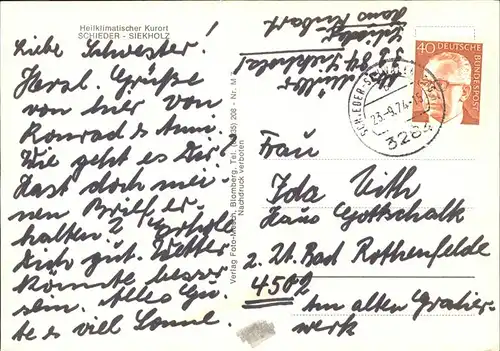 Heilklimatischer Kurort
SCHIEDER - SIEKHOLZ
Liebe Schwester!
Herzl. Grüße
von hier von
Konrad & Anni.
Wie geht es Dir?
Hast doch mei-
nen Brief er-
halten? Erhole
Dich gut. Wetter
könnte besser
sein. Alles Gu-
te & viel Sonne.
Verlag Foto-Mosch, Blomberg, Tel. (05235) 208 - Nr. M
Nachdruck verboten
Haus
3284
40 DEUTSCHE
BUNDESPOST
23.-9.74
3284
Frau
Ida Vith
Haus Gottschalk
z. Zt. Bad Rothenfelde
4502
Am alten Gradier-
werk